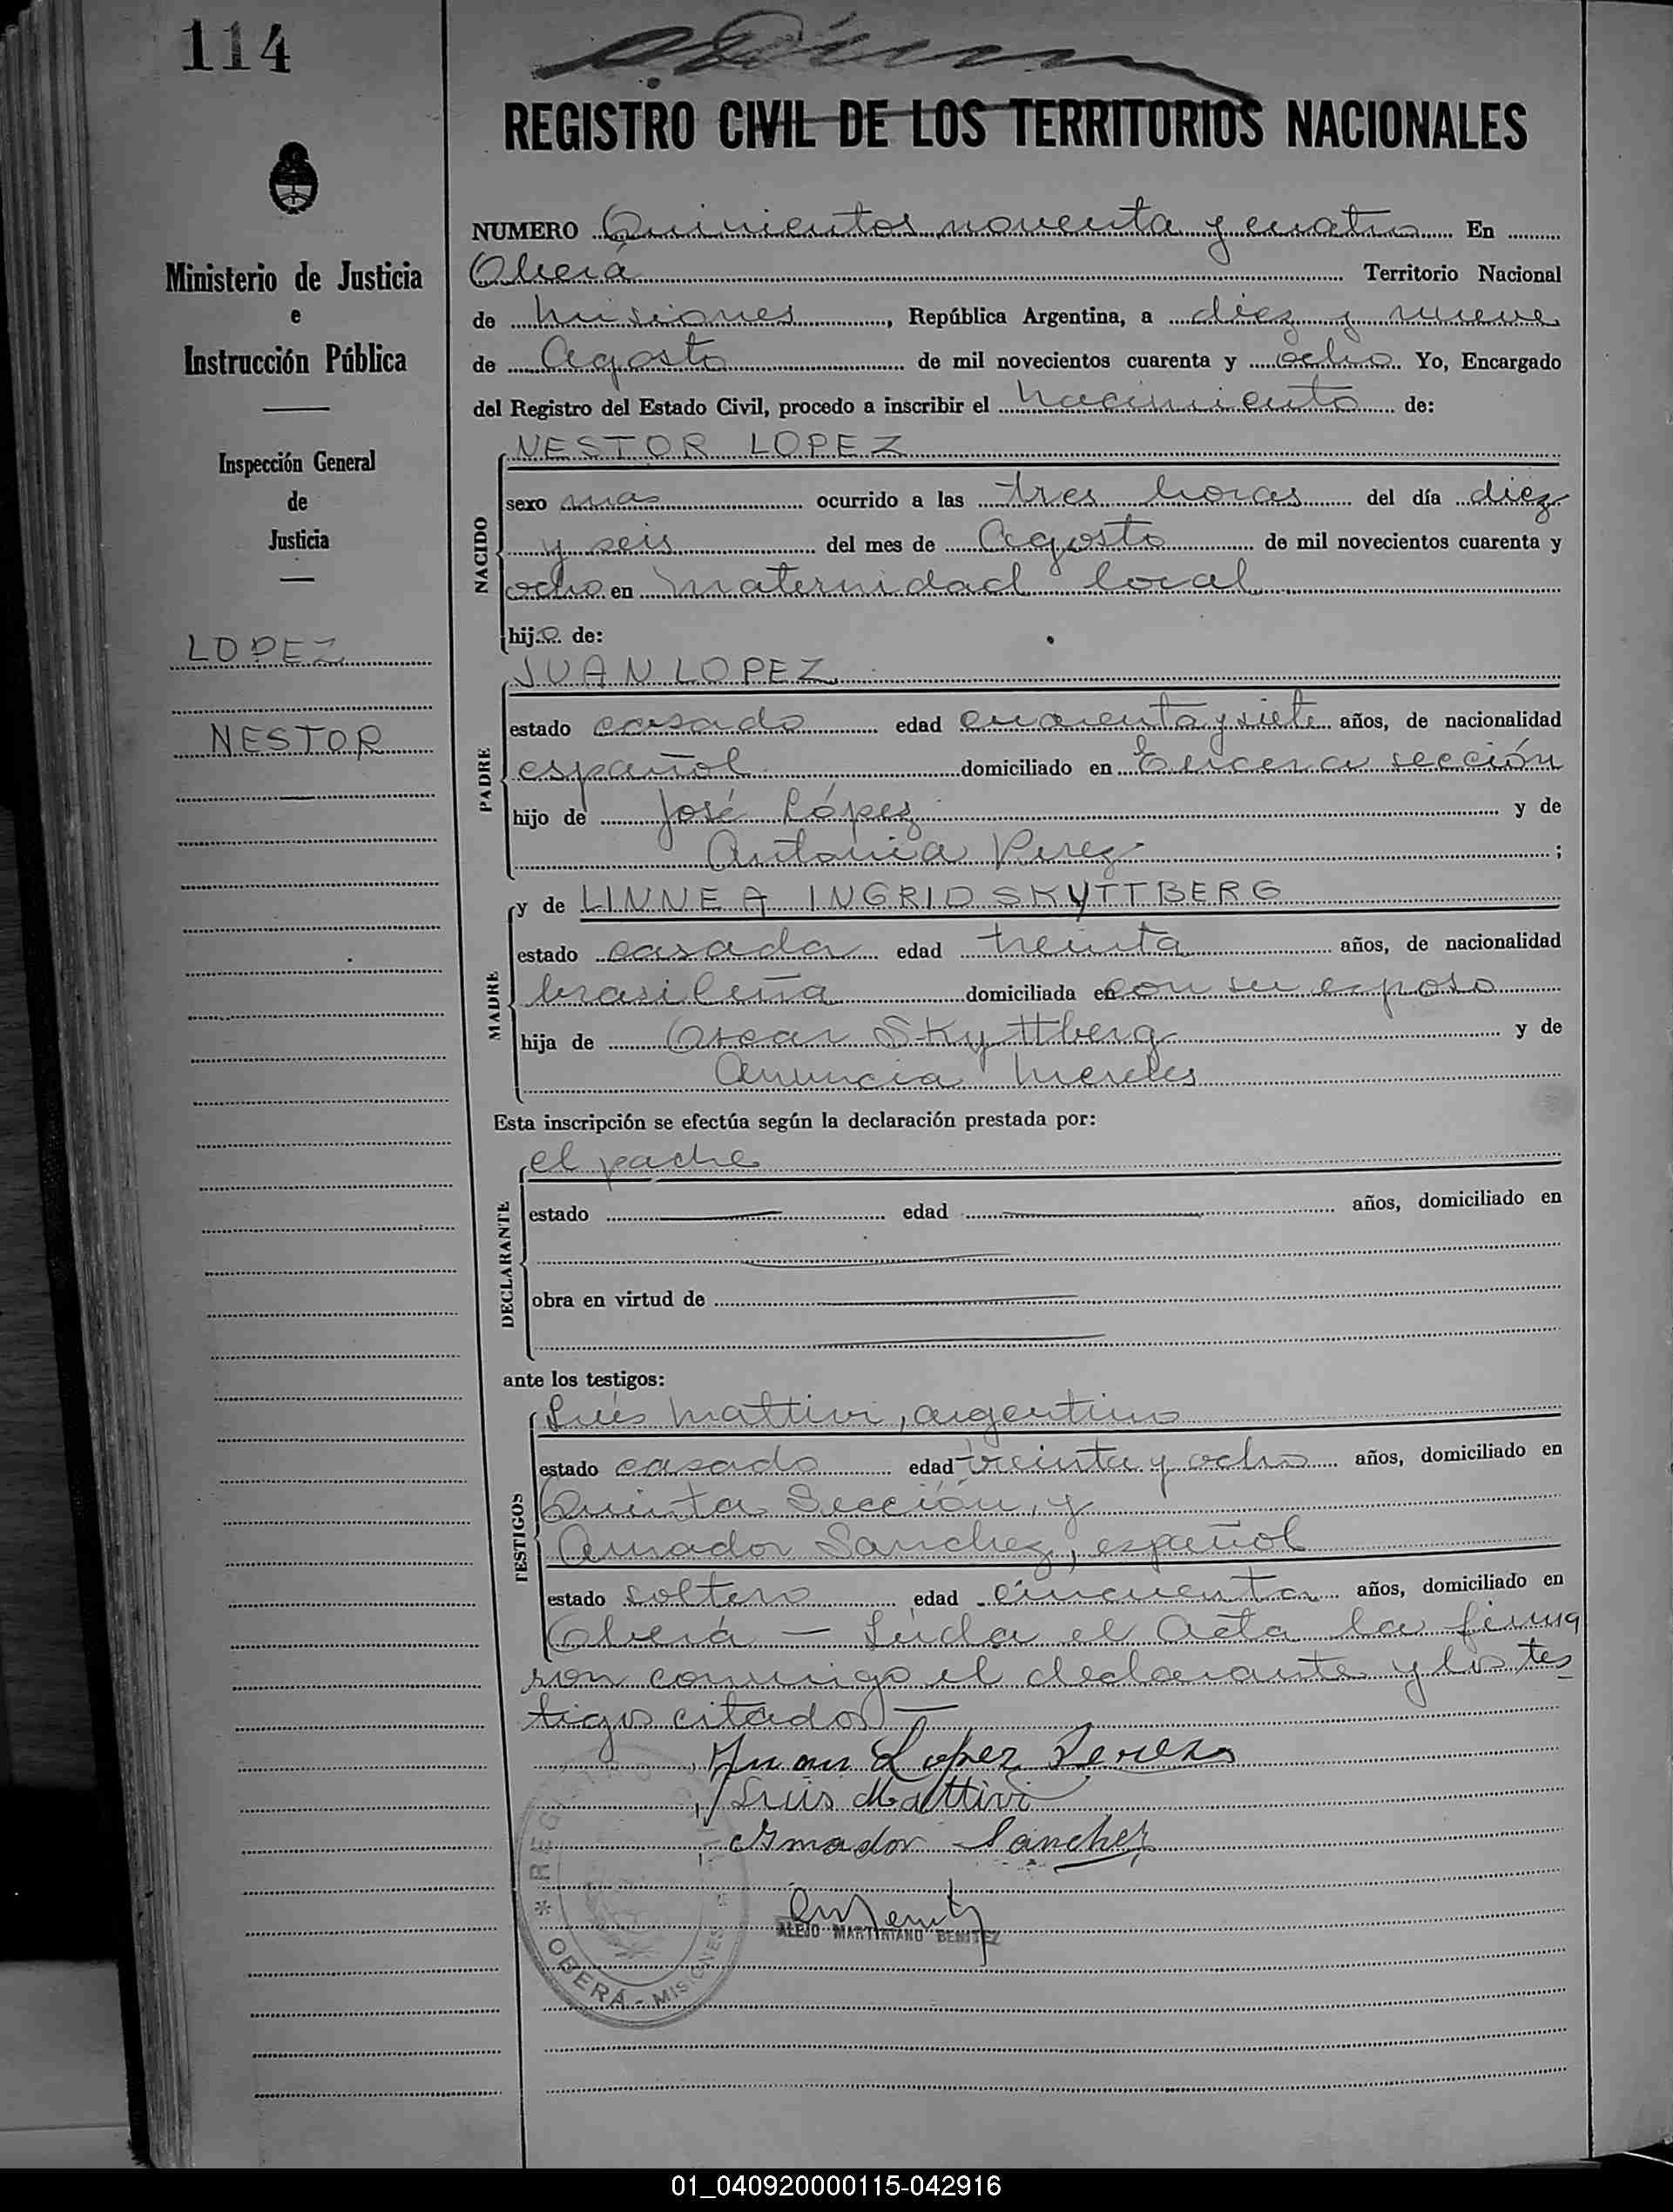 114
REGISTRO CIVIL DE LOS TERRITORIOS NACIONALES
Ministerio de Justicia
e
Instrucción Pública
Inspección General
de
Justicia
LOPEZ
NESTOR
NUMERO Quinientos noventa y cuatro En
Oberá Territorio Nacional
de Misiones, República Argentina, a diez y nueve
de Agosto de mil novecientos cuarenta y ocho Yo, Encargado
del Registro del Estado Civil, procedo a inscribir el nacimiento de:
NACIDO
NESTOR LOPEZ
sexo mas ocurrido a las tres horas del día diez
y seis del mes de Agosto de mil novecientos cuarenta y
ocho en Maternidad local
hijo de:
PADRE
JUAN LOPEZ
estado casado edad cuarenta y siete años, de nacionalidad
español domiciliado en Tercera sección
hijo de José López y de
Antonia Perez ;
MADRE
y de LINNEA INGRID SKYTTBERG
estado casada edad treinta años, de nacionalidad
brasileña domiciliada en con su esposo
hija de Oscar Skyttberg y de
Anuncia Mereles
Esta inscripción se efectúa según la declaración prestada por:
DECLARANTE
el padre
estado edad años, domiciliado en
obra en virtud de
ante los testigos:
TESTIGOS
Luis Mattivi, argentino
estado casado edad treinta y ocho años, domiciliado en
Quinta Sección, y
Amador Sanchez, español
estado soltero edad cincuenta años, domiciliado en
Oberá — Leida el Acta la firma
ron conmigo el declarante y los tes
tigos citados —
Juan Lopez Perez
Luis Mattivi
Amador Sanchez
ALEJO MARTINIANO BENITEZ
OBERÁ - MISIONES
01_040920000115-042916